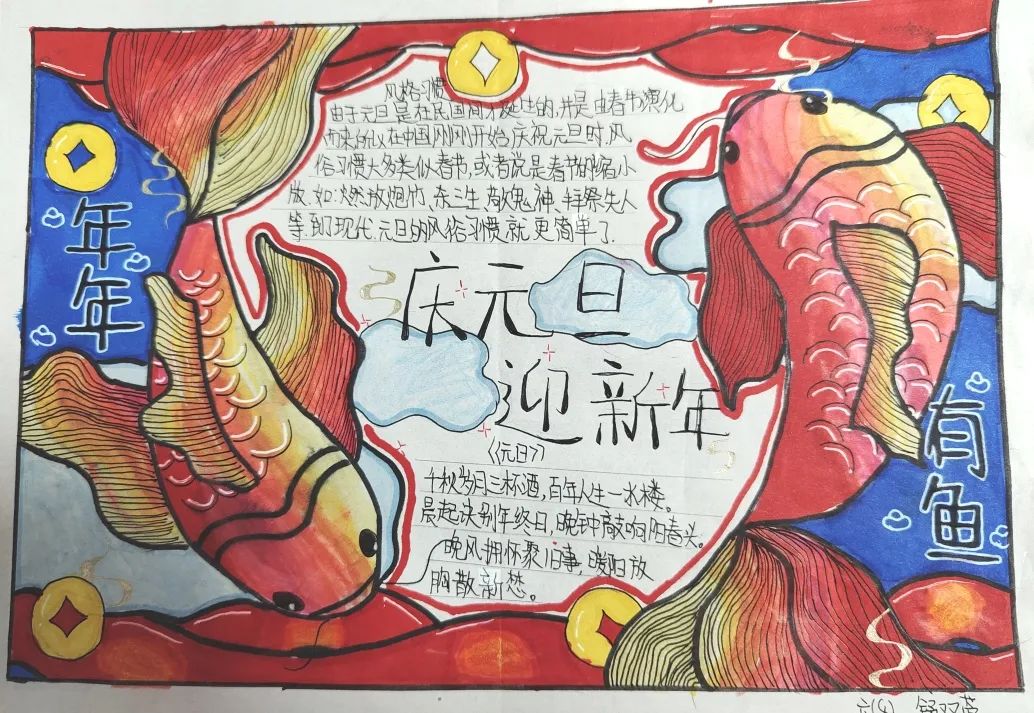 风俗习惯
由于元旦是在民国间才诞生的,并是由春节演化
而来的,以在中国刚刚开始庆祝元旦时,风
俗习惯大多类似春节,或者说是春节的缩小
版,如:燃放炮竹、杀三生、敬鬼神、拜祭先人
等,到了现代,元旦的风俗习惯就更简单了.
年年
庆元旦
迎新年
有鱼
《元日》
千秋岁月三杯酒,百年人生一水楼。
晨起诀别年终日,晚钟敲响阳春头。
晚风拥怀聚旧事,暖阳放
胸散新愁。
六(4)